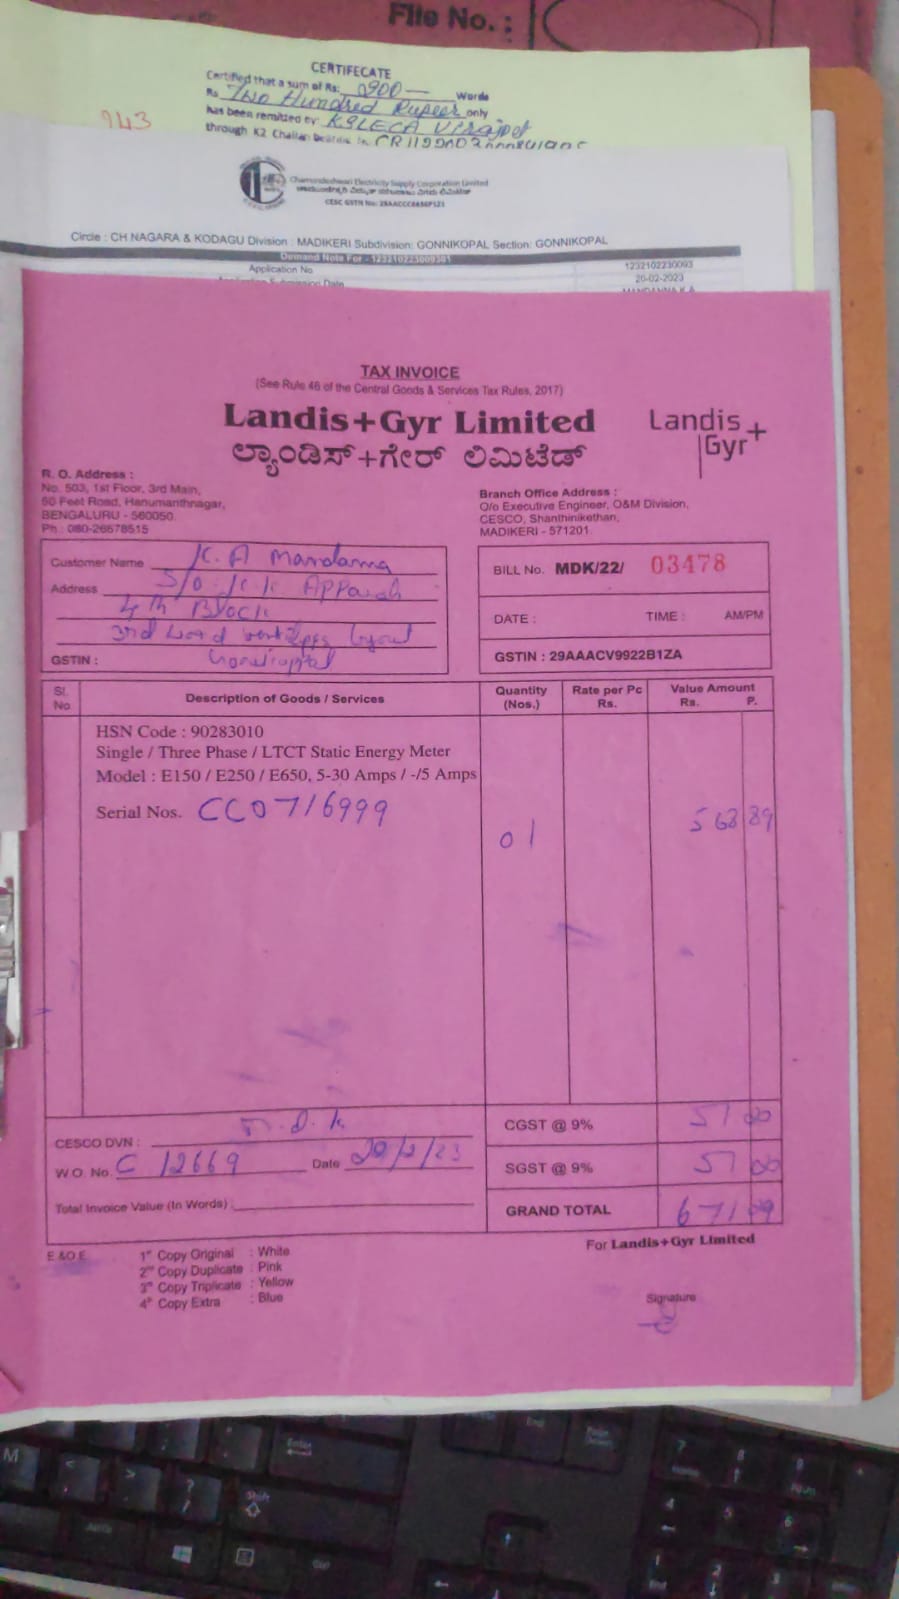 File No. :
CERTIFECATE
Certified that a sum of Rs: 200 — Words
Rs Two Hundred Rupees only
has been remitted by: KSLECA Virajpet
through K2 Challan
943
Chamundeshwari Electricity Supply Corporation Limited
CESC GSTN No:
Circle : CH NAGARA & KODAGU Division : MADIKERI Subdivision: GONNIKOPAL Section: GONNIKOPAL
Demand Note For - 123210223009301
Application No 1232102230093
20-02-2023
TAX INVOICE
(See Rule 46 of the Central Goods & Services Tax Rules, 2017)
Landis+Gyr Limited
ಲ್ಯಾಂಡಿಸ್+ಗೇರ್ ಲಿಮಿಟೆಡ್
Landis+
Gyr
R. O. Address :
No. 503, 1st Floor, 3rd Main,
60 Feet Road, Hanumanthnagar,
BENGALURU - 560050.
Ph : 080-26678515
Branch Office Address :
O/o Executive Engineer, O&M Division,
CESCO, Shanthinikethan,
MADIKERI - 571201.
Customer Name K. A Mandanna
Address S/o K.K. Appaiah
4th Block
3rd
GSTIN :
BILL No. MDK/22/ 03478
DATE : TIME : AM/PM
GSTIN : 29AAACV9922B1ZA
Sl. No. Description of Goods / Services Quantity (Nos.) Rate per Pc Rs. Value Amount Rs. P.
HSN Code : 90283010
Single / Three Phase / LTCT Static Energy Meter
Model : E150 / E250 / E650, 5-30 Amps / -/5 Amps
Serial Nos. CC0716999
01 568 89
CESCO DVN : M.D.K
W.O. No. C 12669 Date 20/2/23
Total Invoice Value (In Words) :
CGST @ 9% 51 20
SGST @ 9% 51 20
GRAND TOTAL 671 29
E.&O.E.
1st Copy Original : White
2nd Copy Duplicate : Pink
3rd Copy Triplicate : Yellow
4th Copy Extra : Blue
For Landis+Gyr Limited
Signature